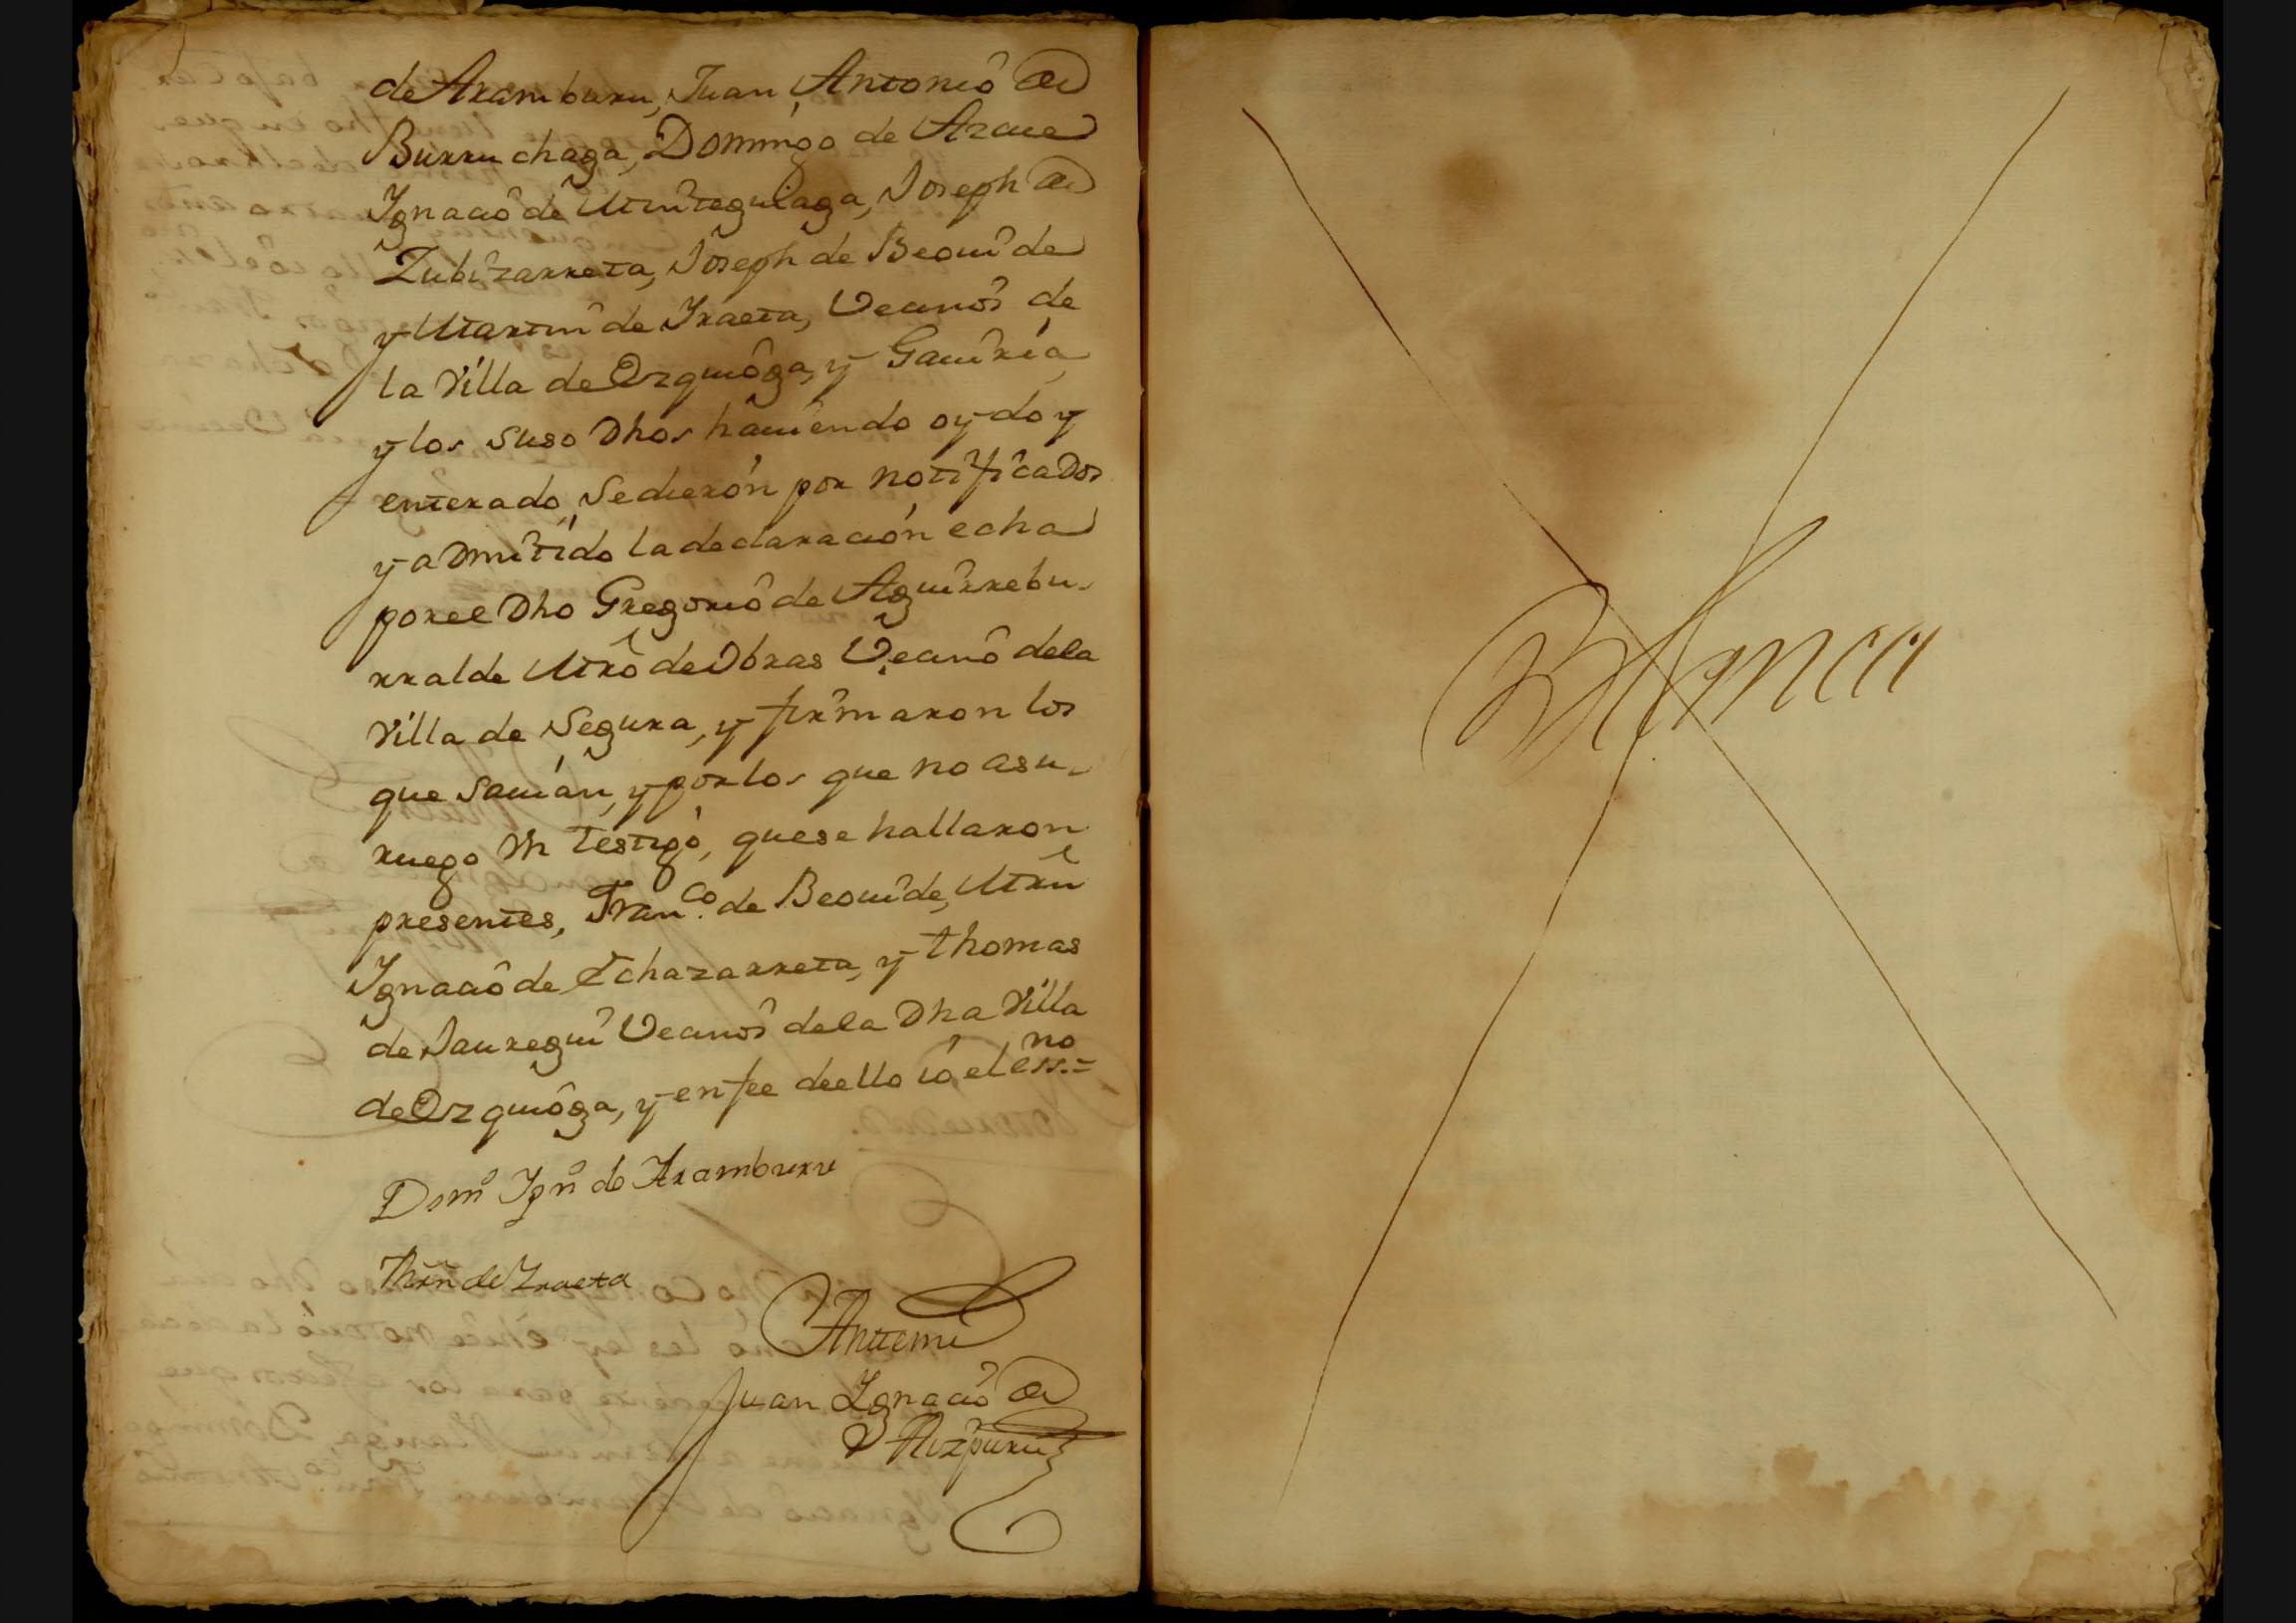 de Aramburu, Juan Antonio de
Burruchaga, Domingo de Arave
Ygnacio de Mintegulaga, Joseph de
Zubizarreta, Joseph de Beovide
y Martin de Yraeta, Vecinos de
la Villa de Ezquioga, y Gaviria
y los suso Dhos haviendo oydo y
enterado, se dieron por notificados
y admitido la declaracion echa
por el Dho Gregorio de Aguirrebu-
rralde Mro de Obras Vecino de la
Villa de Segura, y firmaron los
que savian, y por los que no a su
ruego Vn testigo, que se hallaron
presentes, Fran.co de Beovide, Mrn
Ygnacio de Echazarreta, y thomas
de Jauregui Vecinos de la Dha Villa
de Ezquioga, y en fee de ello io el ess.no=
Domo Ygno de Aramburu
Mrñ de Yraeta
Antemi
Juan Ygnacio de
Aizpuru
Blanca